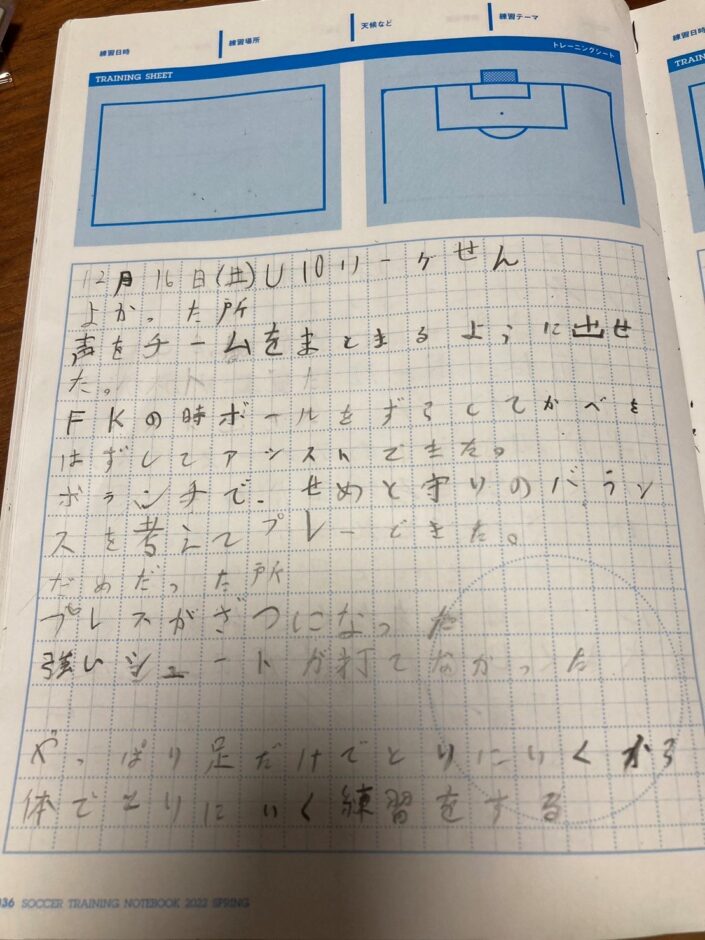 練習日時 練習場所 天候など 練習テーマ
TRAINING SHEET トレーニングシート
12月16日(土)U10リーグせん
よかった所
声をチームをまとまるように出せ
た。
FKの時ボールをずらしてかべを
はずしてアシストできた。
ボランチで、せめと守りのバラン
スを考えてプレーできた。
だめだった所
プレスがざつになった
強いシュートが打てなかった
やっぱり足だけでとりにいくから
体でとりにいく練習をする
036 SOCCER TRAINING NOTEBOOK 2022 SPRING
練習日時
TRAIN